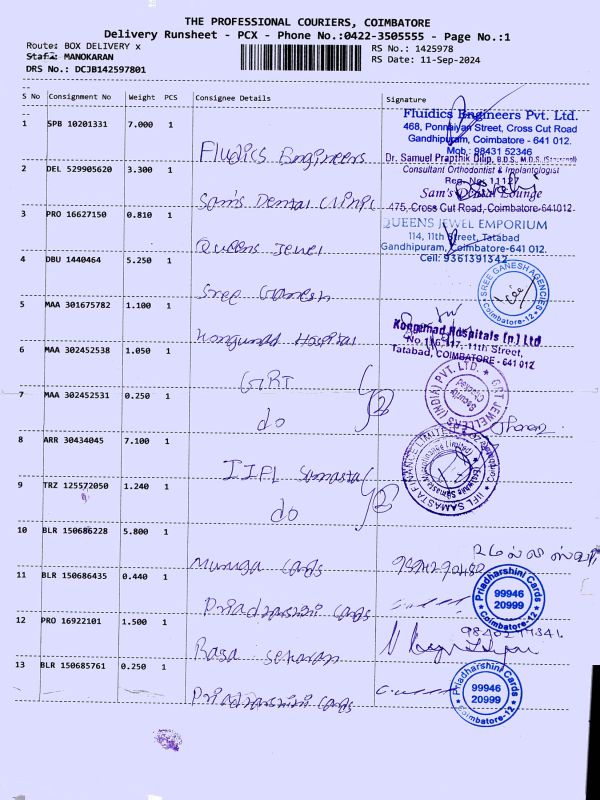 THE PROFESSIONAL COURIERS, COIMBATORE
Delivery Runsheet - PCX - Phone No.:0422-3505555 - Page No.:1
Route: BOX DELIVERY x
Staff: MANOKARAN
DRS No.: DCJB142597801
RS No.: 1425978
RS Date: 11-Sep-2024
S No Consignment No Weight PCS Consignee Details Signature
1 SPB 10201331 7.000 1 Fluidics Engineers
Fluidics Engineers Pvt. Ltd.
468, Ponnaiyan Street, Cross Cut Road
Gandhipuram, Coimbatore - 641 012.
Mob : 98431 52346
2 DEL 529905620 3.300 1 Sam's Dental Clinic
Dr. Samuel Prapthik Dilip, B.D.S., M.D.S.
Consultant Orthodontist & Implantologist
Reg. No: 11127
Sam's Dental Lounge
475, Cross Cut Road, Coimbatore-641012.
3 PRO 16627150 0.810 1 Queens Jewel
QUEENS JEWEL EMPORIUM
114, 11th Street, Tatabad
Gandhipuram, Coimbatore-641 012.
Cell: 9361391342
4 DBU 1440464 5.250 1 Sree Ganesh
SREE GANESH AGENCIES
Coimbatore-12
5 MAA 301675782 1.100 1 Kongunad Hospital
Kongunad Hospitals (P) Ltd
11th Street,
Tatabad, COIMBATORE - 641 012
6 MAA 302452538 1.050 1 GRT
GRT JEWELLERS (INDIA) PVT. LTD.
Security
Checked
7 MAA 302452531 0.250 1 do
8 ARR 30434045 7.100 1 IIFL Samasta
IIFL SAMASTA FINANCE LIMITED
9 TRZ 125572050 1.240 1 do
10 BLR 150686228 5.800 1 Muruga Cards
11 BLR 150686435 0.440 1 Priadharshini Cards
Priadharshini Cards
99946
20999
Coimbatore-12
12 PRO 16922101 1.500 1 Raja Sekaran
13 BLR 150685761 0.250 1 Priadharshini Cards
Priadharshini Cards
99946
20999
Coimbatore-12